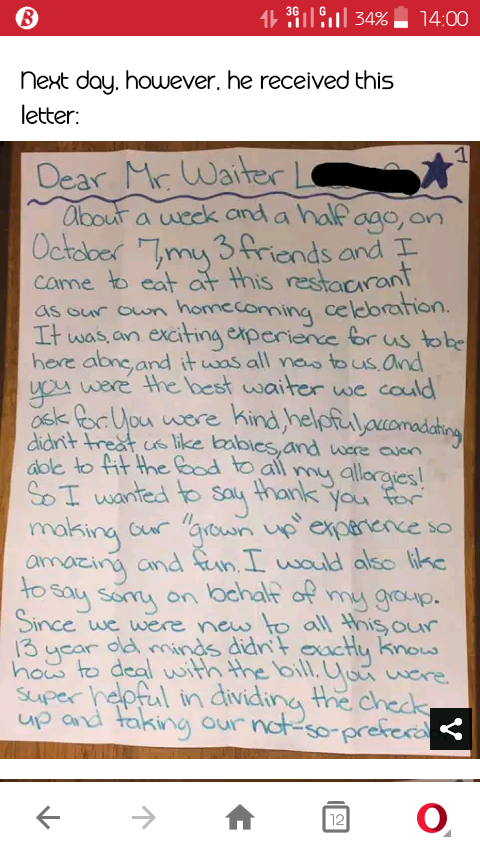 3G G 34% 14:00
Next day, however, he received this
letter:
1
Dear Mr. Waiter L
About a week and a half ago, on
October 7, my 3 friends and I
came to eat at this restaurant
as our own homecoming celebration.
It was, an exciting experience for us to be
here alone, and it was all new to us. And
you were the best waiter we could
ask for. You were kind, helpful, accomadating,
didn't treat us like babies, and were even
able to fit the food to all my allergies!
So I wanted to say thank you for
making our "grown up" experience so
amazing and fun. I would also like
to say sorry on behalf of my group.
Since we were new to all this, our
13 year old minds didn't exactly know
how to deal with the bill. You were
super helpful in dividing the check
up and taking our not-so-preferab
12